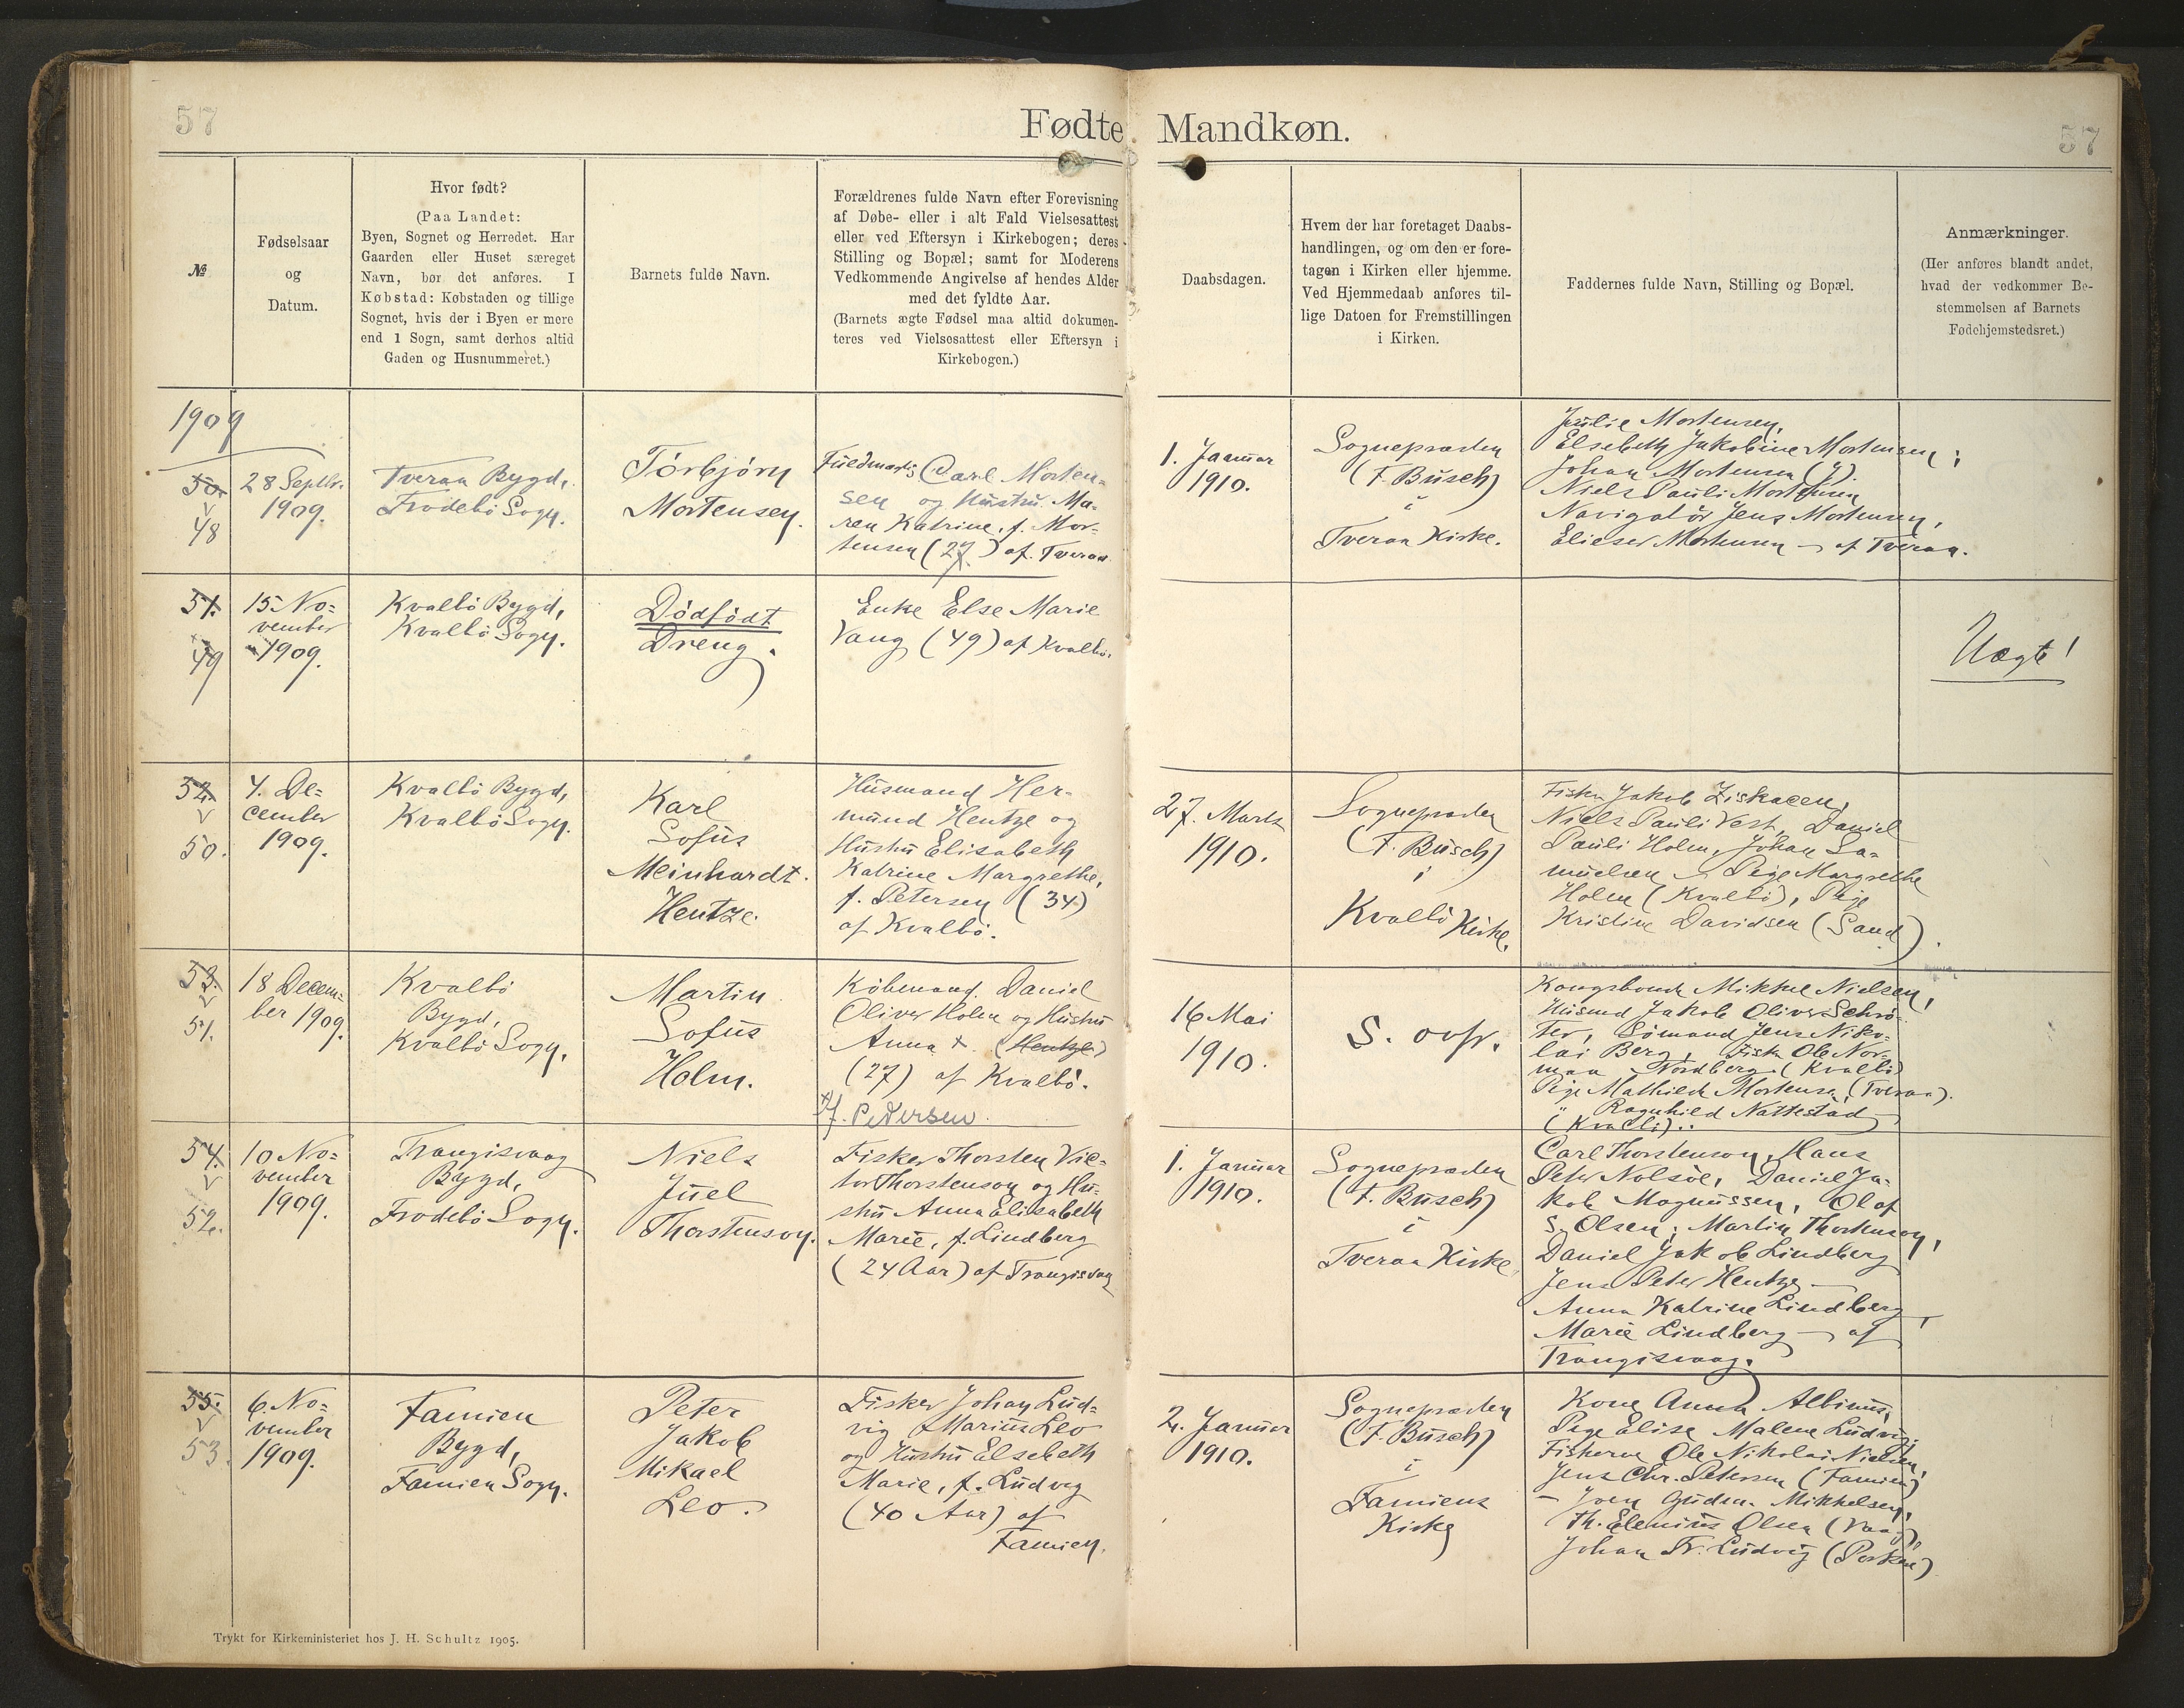 57
Fødte Mandkøn.
57
№
Fødselsaar
og
Datum.
Hvor født?
(Paa Landet:
Byen, Sognet og Herredet. Har
Gaarden eller Huset særeget
Navn, bør det anføres. I
Købstad: Købstaden og tillige
Sognet, hvis der i Byen er mere
end 1 Sogn, samt derhos altid
Gaden og Husnummeret.)
Barnets fulde Navn.
Forældrenes fulde Navn efter Forevisning
af Døbe- eller i alt Fald Vielsesattest
eller ved Eftersyn i Kirkebogen; deres
Stilling og Bopæl; samt for Moderens
Vedkommende Angivelse af hendes Alder
med det fyldte Aar.
(Barnets ægte Fødsel maa altid dokumen-
teres ved Vielsesattest eller Eftersyn i
Kirkebogen.)
Daabsdagen.
Hvem der har foretaget Daabs-
handlingen, og om den er fore-
tagen i Kirken eller hjemme.
Ved Hjemmedaab anføres til-
lige Datoen for Fremstillingen
i Kirken.
Faddernes fulde Navn, Stilling og Bopæl.
Anmærkninger.
(Her anføres blandt andet,
hvad der vedkommer Be-
stemmelsen af Barnets
Fødehjemstedsret.)
1909
50.
48
28 Septbr.
1909.
Tveraa Bygd,
Frodebö Sogn.
Törbjörn
Mortensen.
Carl Morten=
sen og Hustru Ma-
ren Katrine, f. Mor-
tensen (27) af Tveraa
1. Januar
1910.
Sognepræsten
(F. Busch)
i
Tveraa Kirke.
Julie Mortensen,
Elsebeth Jakobine Mortensen;
Johan Mortensen
Niels Pauli Mortensen
Navigatör Jens Mortensen,
Elieser Mortensen — af Tveraa.
51.
49
15 No=
vember
1909.
Kvalbö Bygd,
Kvalbö Sogn.
Dödfödt
Dreng.
Enke Else Marie
Vang (49) af Kvalbö.
Uægte!
52.
50.
4. De=
cember
1909.
Kvalbö Bygd,
Kvalbö Sogn.
Karl
Sofus
Meinhardt
Hentze.
Husmand Her-
mund Hentze og
Hustru Elisabeth
Katrine Margrethe,
f. Petersen (34)
af Kvalbö.
27. Marts
1910.
Sognepræsten
(F. Busch)
i
Kvalbö Kirke.
Fisker Jakob
Niels Pauli Vest, Daniel
Pauli Holm, Johan Sa=
muelsen — Pige Margrethe
Holm (Kvalbö), Pige
Kristine Davidsen (Sand).
53.
51.
18 Decem=
ber 1909.
Kvalbö
Bygd,
Kvalbö Sogn.
Martin
Sofus
Holm.
Köbmand Daniel
Oliver Holm og Hustru
Anna x (Hentze)
(27) af Kvalbö.
x f. Petersen
16 Mai
1910.
S. ovfr.
Kongsbonde Mikkel Nielsen,
Husmd Jakob Oliver Schrö-
ter, Sömand Jens Niko-
lai Berg, Fisker Ole Nor-
man Nordberg (Kvalbö)
Pige Mathilde Mortensen (Tveraa).
" Ragnhild Nattestad
(Kvalbö).
54.
52.
10 No=
vember
1909.
Trangisvaag
Bygd,
Frodebö Sogn.
Niels
Juel
Thorstenson.
Fisker Thorsten Vic=
tor Thorstenson og Hu-
stru Anna Elisabeth
Marie, f. Lindberg
(24 Aar) af Trangisvaag
1. Januar
1910.
Sognepræsten
(F. Busch)
i
Tveraa Kirke
Carl Thorstenson, Hans
Peter Nolsöe, Daniel Ja-
kob Magnussen, Olaf
S. Olsen, Martin Thorstenson,
Daniel Jakob Lindberg
Jens Peter Hentze —
Anna Katrine Lindberg,
Marie Lindberg — af
Trangisvaag.
55.
53.
6. No=
vember
1909.
Famien
Bygd,
Famien Sogn.
Peter
Jakob
Mikael
Leo.
Fisker Johan Lud=
vig Marius Leo
og Hustru Elsebeth
Marie, f. Ludvig
(40 Aar) af
Famien.
2. Januar
1910.
Sognepræsten
(F. Busch)
i
Famiens
Kirke
Kone Anna Albinus,
Pige Elise Malene Ludvig,
Fiskerne Ole Nikolai Nielsen,
Jens Chr. Petersen (Famien)
— Gudm. Mikkelsen,
Th. Olsen (Vaag),
Johan Fr. Ludvig (Porken)
Trykt for Kirkeministeriet hos J. H. Schultz 1905.